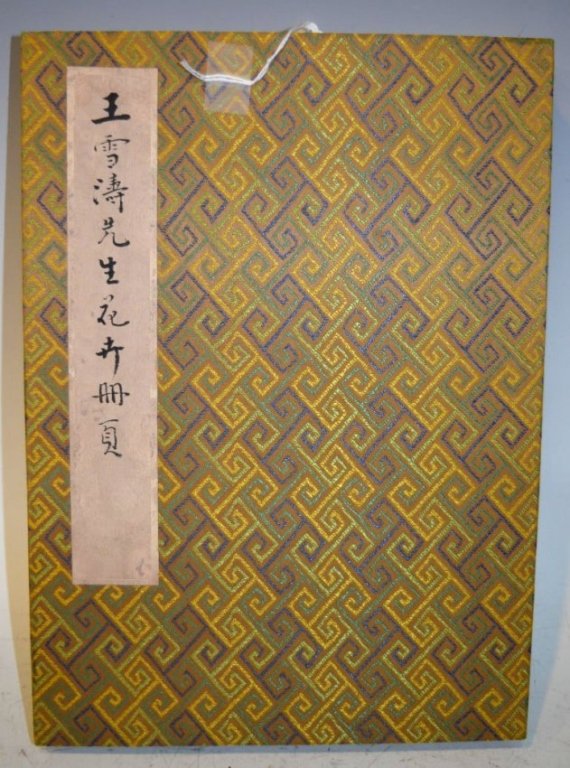 王雪濤先生花卉冊頁